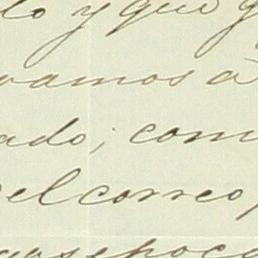 lo y que
vamos a
ado; com
el correo,
poco